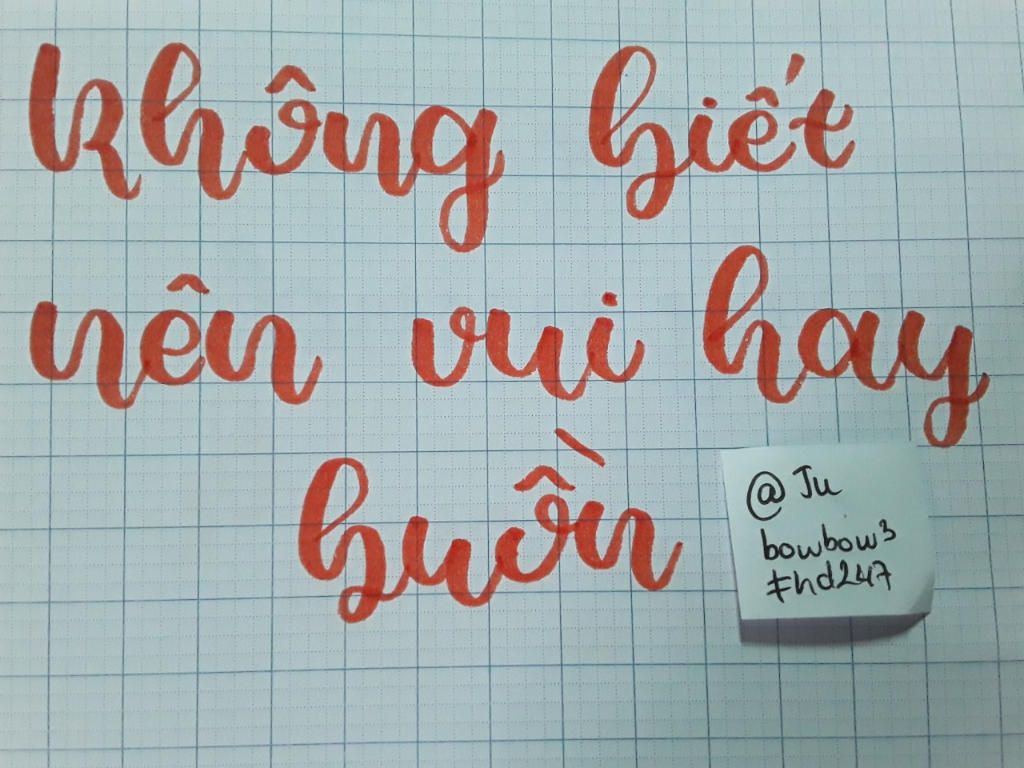 không biết
nên vui hay
buồn
@Ju
bowbow³
#hd247